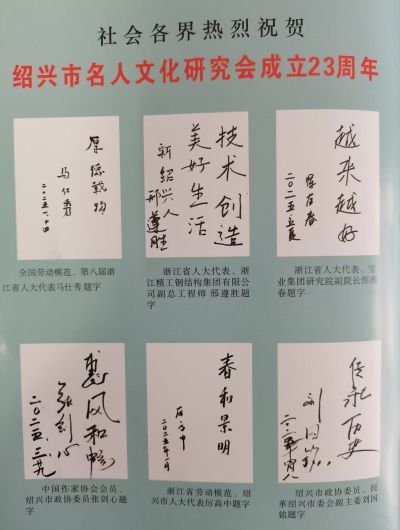 社会各界热烈祝贺
绍兴市名人文化研究会成立23周年
厚德载物
马仕秀
二〇二五、一、十四
技术创造
美好生活
新绍兴人
邢遵胜
越来越好
二〇二五、立夏
全国劳动模范、第八届浙
江省人大代表马仕秀题字
浙江省人大代表、浙
江精工钢结构集团有限公
司副总工程师 邢遵胜题
字
浙江省人大代表、宝
业集团研究院副院长恽燕
春题字
惠风和畅
张剑心
二〇二五、三、九
春和景明
历高中
二〇二五年一月
传承历史
刘国铭
中国作家协会会员、
绍兴市政协委员张剑心题
字
浙江省劳动模范、绍
兴市人大代表历高中题字
绍兴市政协委员、民
革绍兴市委会副主委刘国
铭题字